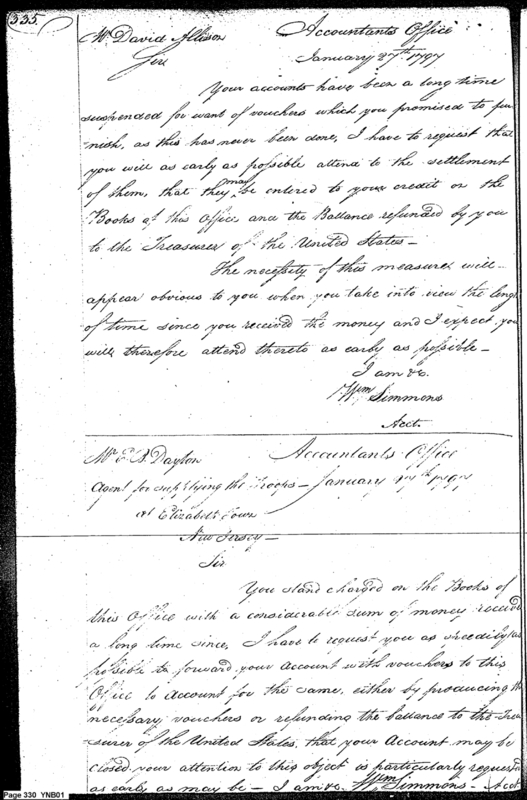 335.
Mr David Allison
Accountants Office
January 27th 1797
Sir
Your accounts have been a long time
suspended for want of vouchers which you promised to fur
nish, as this has never been done, I have to request that
you will as early as possible attend to the settlement
of them, that they may be entered to your credit on the
Books of this Office and the Ballance refunded by you
to the Treasurer of the United States—
The necessity of this measure will
appear obvious to you when you take into view the leng
of time since you received the money and I expect you
will therefore attend thereto as early as possible—
I am &c.
Wm Simmons
Acct.
Mr E. B. Dayton
Accountants Office
Agent for supplying the Troops—
January 27th 1797
at Elizabeth Town
New Jersey—
Sir
You stand charged on the Books of
this Office with a considerable sum of money received
a long time since, I have to request you as speedily as
possible to forward your account with vouchers to this
Office to account for the same, either by producing the
necessary vouchers or refunding the ballance to the Trea
surer of the United States, that your Account may be
closed, your attention to this object is particularly requested
as early as may be— I am &c. Wm Simmons— Acct
Page 330 YNB01